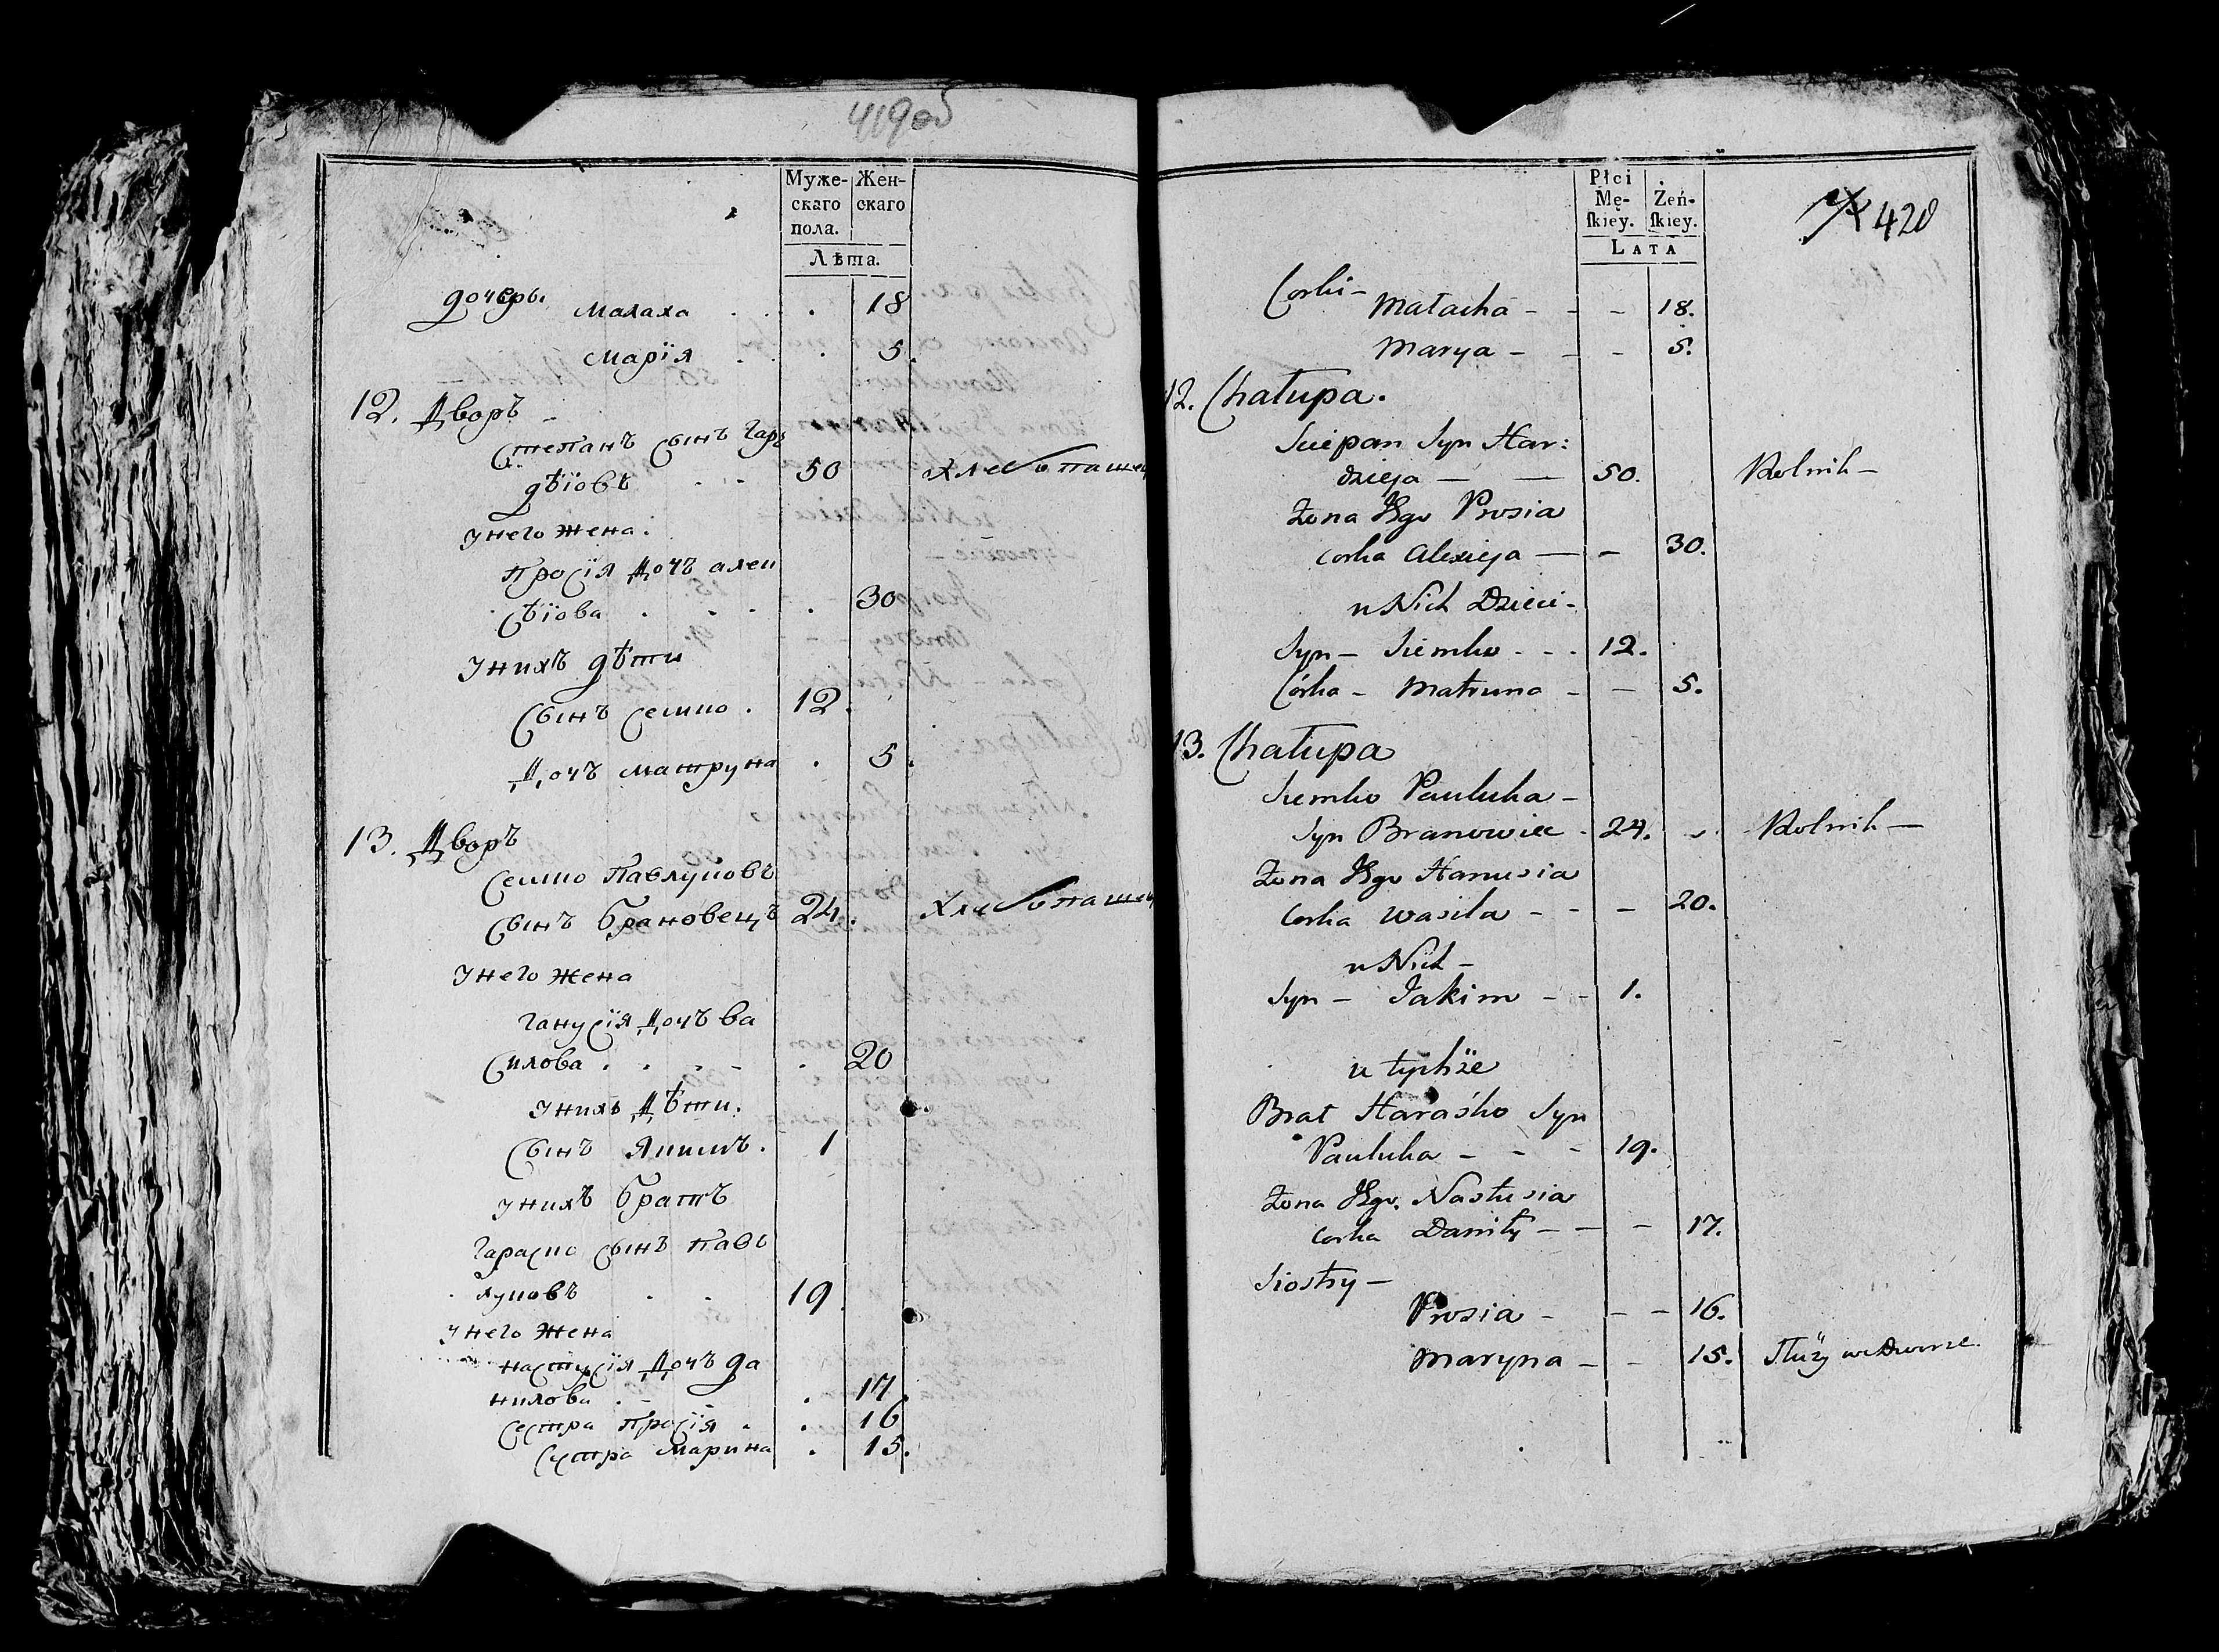 419об
Муже-
скаго
пола.
Жен-
скаго
Лѣта.
дочеры
малаха . . . 18
марїя . . 5.
12. Дворъ
Степанъ сынъ Гаръ
дѣiовъ . . 50 хлебопашец
унего жена.
просїя дочъ алеи
сѣïова . . . . 30
унихъ дѣти
сынъ семко . 12.
дочъ матруна . 5.
13. Дворъ
Семко Павлуковъ
сынъ брановецъ 24. хлебопашец
унего жена
ганусїя дочъ ва
силова . . . . . 20
унихъ дѣти.
сынъ якимъ. 1
унихъ братъ
гараско сынъ павъ
луковъ . . 19
унего жена
настусїя дочъ да
нилова . . . 17.
сестра просїя . . 16
сестра марина . 15.
420
Płci
Mę-
skiey.
Żeń-
skiey.
LATA
Corki -
Małacha - - - 18.
Marya - - - 5.
12. Chałupa.
Sciepan Syn Har:
dzieja — — 50. Rolnik —
Żona Jego Prosia
corka Alexieja — - 30.
u Nich Dzieci -
Syn - Siemko - - - 12.
Córka - Matruna - - 5.
13. Chałupa
Siemko Pauluka -
Syn Branowiec - 24. Rolnik —
Żona Jego Hanusia
Corka Wasila - - - 20.
u Nich -
Syn - Jakim - - 1.
u tychże
Brat Haraśko Syn
Pauluka - - - 19.
Żona Jego. Nastusia
corka Daniły - - - 17.
Siostry -
Prosia - - - 16.
Maryna - - 15. Służy we Dworze